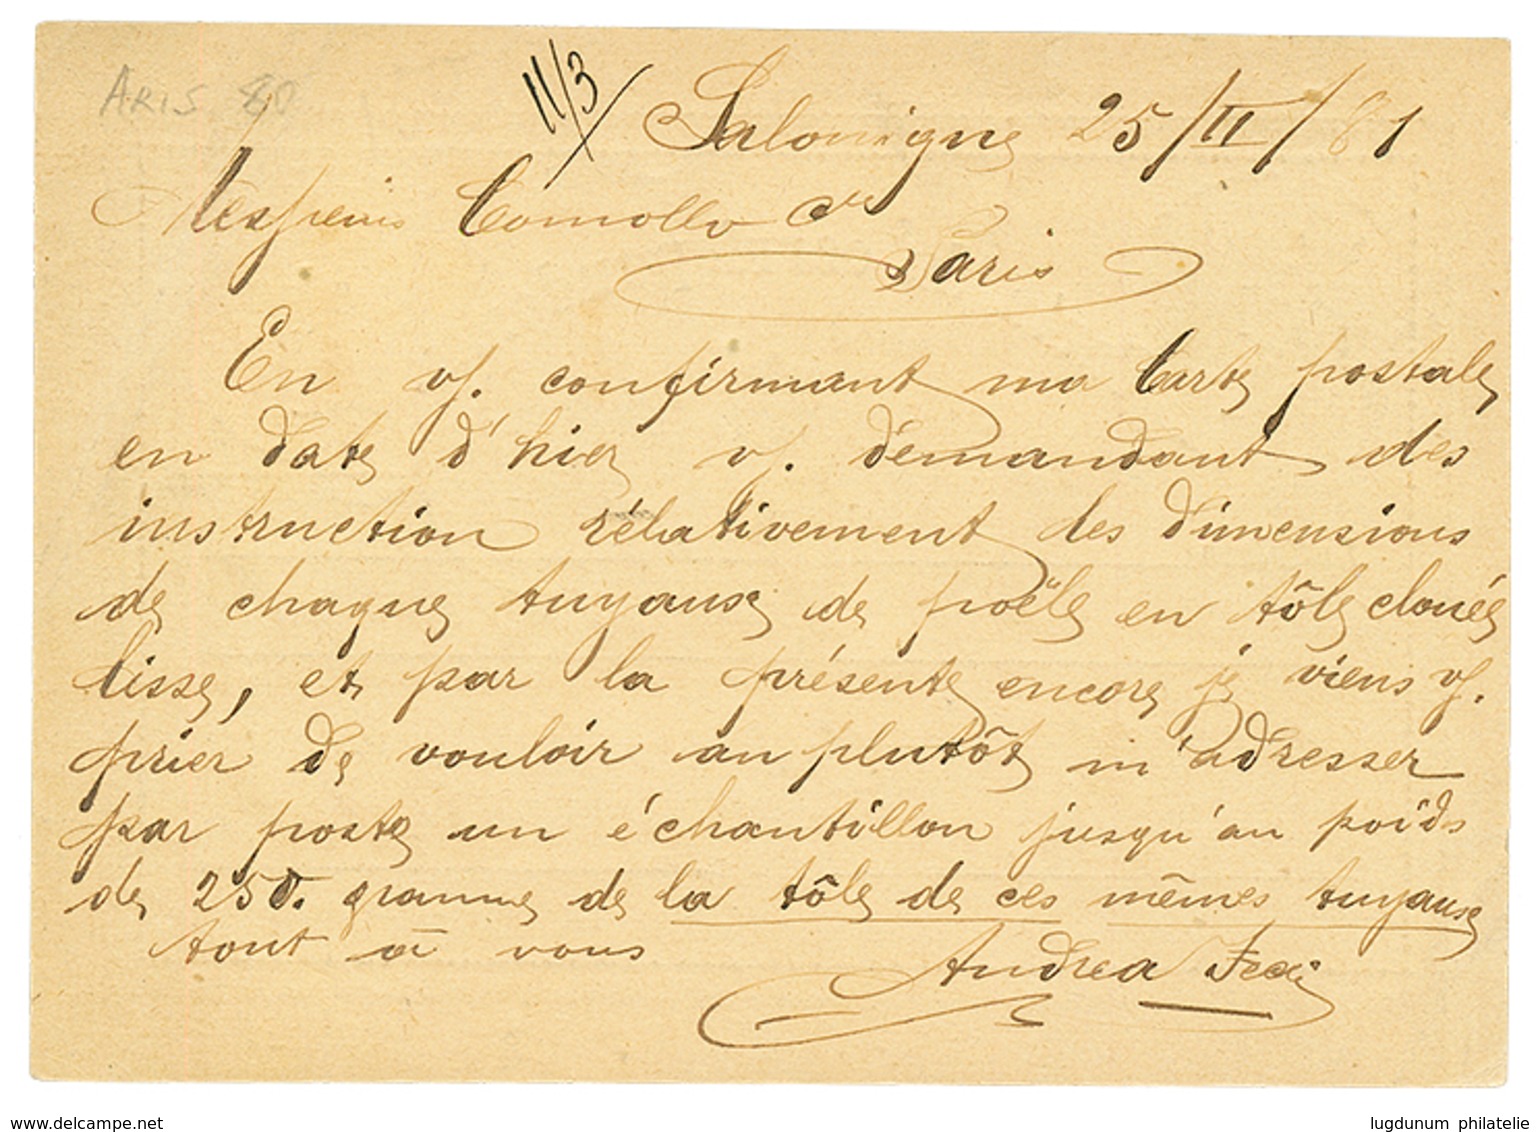 ARIS 80
11/3
Salonique 25/II/81
Messieurs Comollo Cie
Paris
En vs. confirmant ma Carte postale
en date d'hier vs. démandant des
instruction rélativement des dimensions
de chaque tuyause de poële en tôle clouée
lisse, et par la présente encore je viens vs.
prier de vouloir au plutôt m'adresser
par poste un échantillon jusqu'au poids
de 250. gramme de la tôle de ces mêmes tuyause
tout à vous
Andrea
www.delcampe.net
lugdunum philatelie